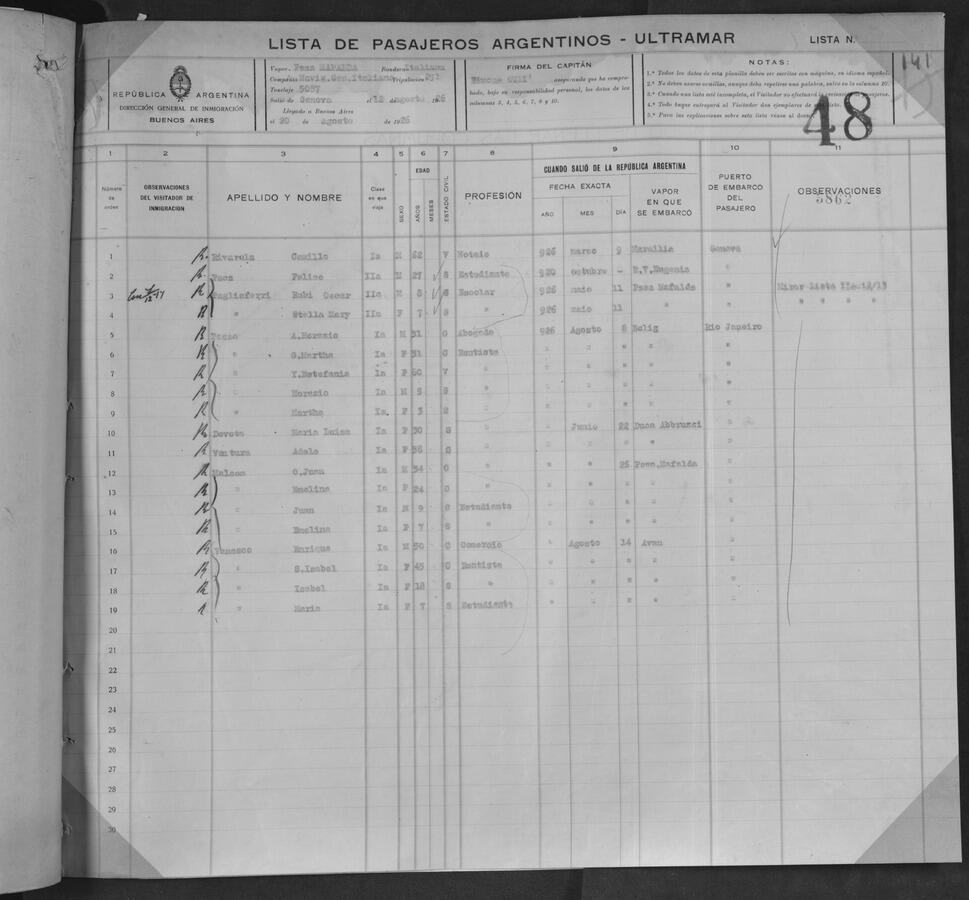 LISTA DE PASAJEROS ARGENTINOS - ULTRAMAR
LISTA N.
141
REPÚBLICA ARGENTINA
DIRECCIÓN GENERAL DE INMIGRACIÓN
BUENOS AIRES
Vapor. Pssa MAFALDA Bandera Italiana
Compañía Navig.Gen.Italiana Tripulación
Tonelaje 5087
Salió de Genova el 12 agosto 1926
Llegado a Buenos Aires
el 20 de Agosto de 1926
FIRMA DEL CAPITÁN
aseguramdo que ha compro-
bado, bajo su responsabilidad personal, los datos de las
columnas 3, 4, 5, 6, 7, 8 y 10.
NOTAS:
1.ª Todos los datos de esta planilla deben ser escritos con máquina, en idioma español.
2.ª No deben usarse comillas, aunque deba repetirse una palabra, salvo en la columna 10.
3.ª Cuando una lista esté incompleta, el Visitador no efectuará la revisación de pasajeros.
4.ª Todo buque entregará al Visitador dos ejemplares de lista.
5.ª Para las explicaciones sobre esta lista véase al dorso.
48
1 2 3 4 5 6 7 8 9 10 11
Número de orden
OBSERVACIONES DEL VISITADOR DE INMIGRACIÓN
APELLIDO Y NOMBRE
Clase en que viaja
SEXO
EDAD
AÑOS
MESES
ESTADO CIVIL
PROFESIÓN
CUANDO SALIÓ DE LA REPÚBLICA ARGENTINA
FECHA EXACTA
AÑO
MES
DÍA
VAPOR EN QUE SE EMBARCÓ
PUERTO DE EMBARCO DEL PASAJERO
OBSERVACIONES
5862
1 R Rivarola Camillo Ia M 62 V Notaio 926 marzo 9 Marsilia Genova
2 R Paez Felice IIa M 27 S Estudiante 920 octubre - R.V.Eugenia "
3 R Tagliaferri Rubi Oscar IIa M 8 S Escolar 926 maio 11 Pssa Mafalda " Mirar Lista IIa-12/13
4 R " Stella Mary IIa F 7 S " 926 maio 11 " " " " " "
5 R A.Horazio Ia M 31 C Abogado 926 Agosto 8 Belig Rio Janeiro
6 R " G.Martha Ia F 31 C Rentista " " " " "
7 R " Y.Estefania Ia F 60 V " " " " " "
8 R " Horazio Ia M 5 S " " " " " "
9 R " Martha Ia F 3 S " " " " "
10 R Devoto Maria Luisa Ia F 30 S " Junio 22 Duca Abbruzzi "
11 R Ventura Adele Ia F 56 C " " " " "
12 R Malcom G.Juan Ia M 34 C " " 25 Pssa.Mafalda "
13 R " Emelina Ia F 24 C " " " " "
14 R " Juan Ia M 9 S Estudiante " " " " "
15 R " Emelina Ia F 7 S " " " " " "
16 R Vanasco Enrique Ia M 50 C Comercio " Agosto 14 Avan "
17 R " S.Isabel Ia F 45 C Rentista " " " " "
18 R " Isabel Ia F 18 S " " " " " "
19 R " Maria Ia F 7 S Estudiante " " " " "
20
21
22
23
24
25
26
27
28
29
30